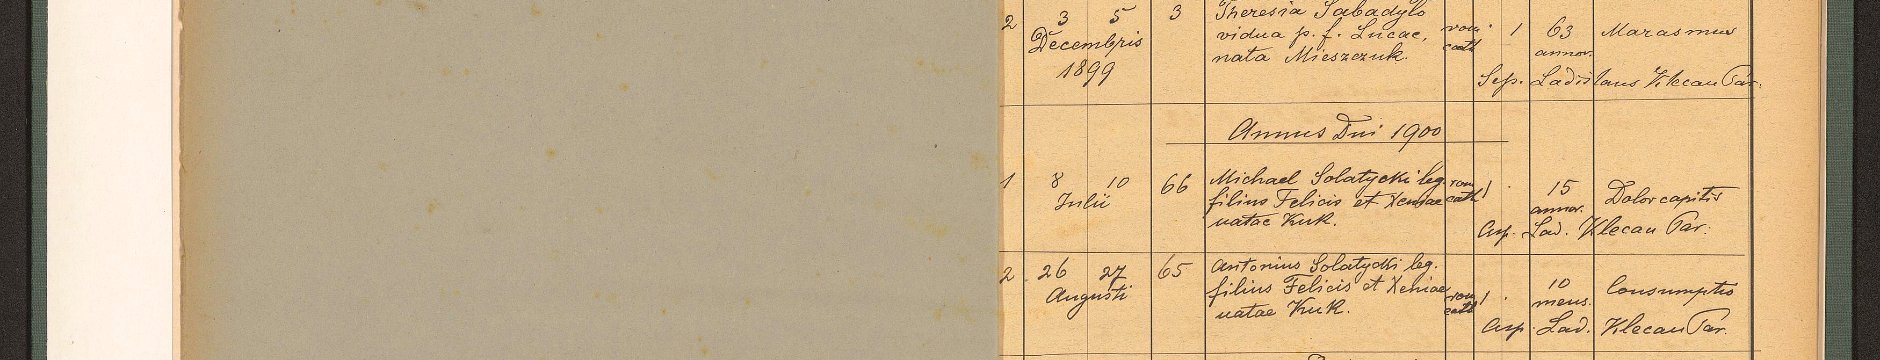 2 3 5 3 Theresia Sabadyło
vidua p. f. Lucae, rom. 1 63 Marasmus
Decembris nata Mieszczuk. cath annor.
1899 Sep. Ladislaus Klecan Par.
Annus Dni 1900
1 8 10 66 Michael Solatycki leg. rom 1 15 Dolor capitis
Julii filius Felicis et Xeniae cath annor.
natae Kuk. Lad. Klecan Par.
2 26 27 65 Antonius Solatycki leg.
Augusti filius Felicis et Xeniae rom 1 10 Consumptio
natae Kuk. cath mens.
Lad. Klecan Par.